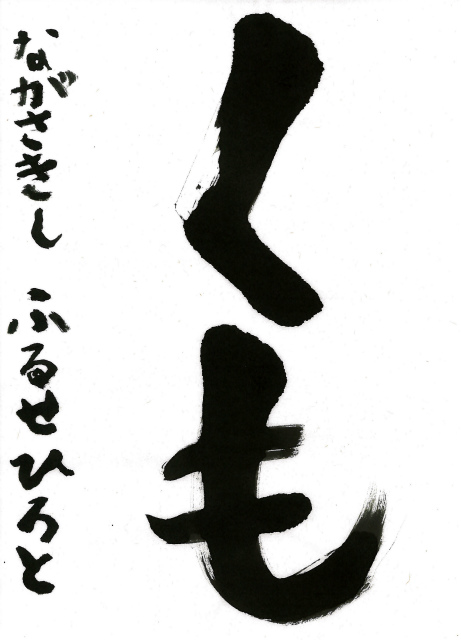 くも
ながさきし ふるせひろと